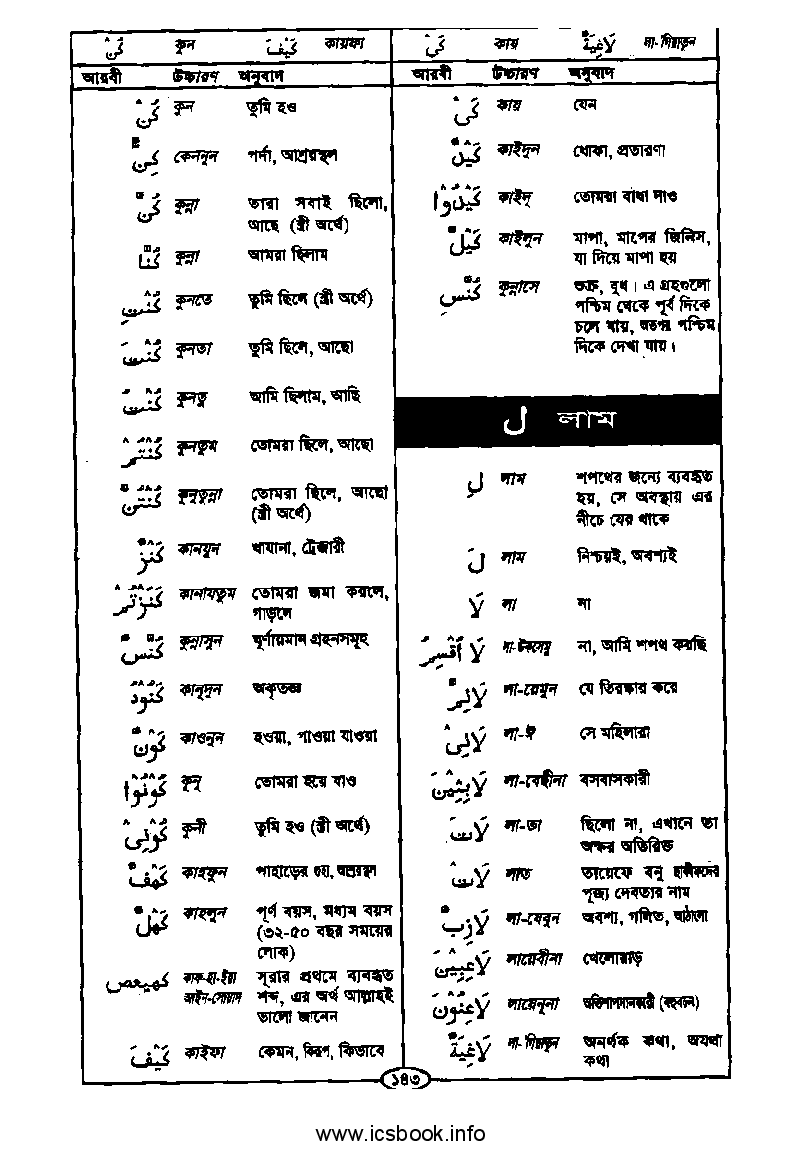 كُنْ কুন كَيْفَ কায়ফা
আরবী উচ্চারণ অনুবাদ
كُنْ কুন তুমি হও
كِنٌّ কেননুন পর্দা, আশ্রয়স্থল
كُنَّ কুন্না তারা সবাই ছিলো,
আছে (স্ত্রী অর্থে)
كُنَّا কুন্না আমরা ছিলাম
كُنْتِ কুনতে তুমি ছিলে (স্ত্রী অর্থে)
كُنْتَ কুনতা তুমি ছিলে, আছো
كُنْتُ কুনতু আমি ছিলাম, আছি
كُنْتُمْ কুনতুম তোমরা ছিলে, আছো
كُنْتُنَّ কুনতুন্না তোমরা ছিলে, আছো
(স্ত্রী অর্থে)
كَنْزٌ কানযুন খাযানা, ট্রেজারী
كَنَزْتُمْ কানাযতুম তোমরা জমা করলে,
গাড়লে
كُنَّسٌ কুন্নাসুন ঘূর্ণায়মান গ্রহসমূহ
كَنُوْدٌ কানূদুন অকৃতজ্ঞ
كَوْنٌ কাওনুন হওয়া, পাওয়া যাওয়া
كُوْنُوْا কূনূ তোমরা হয়ে যাও
كُوْنِىْ কুনী তুমি হও (স্ত্রী অর্থে)
كَهْفٌ কাহফুন পাহাড়ের গুহা, আশ্রয়স্থল
كَهْلٌ কাহলুন পূর্ণ বয়স, মধ্যম বয়স
(৩২-৫০ বছর সময়ের
লোক)
كهيعص কাফ-হা-ইয়া সূরার প্রথমে ব্যবহৃত
আইন-সোয়াদ শব্দ, এর অর্থ আল্লাহই
ভালো জানেন
كَيْفَ কাইফা কেমন, কিরূপ, কিভাবে
كَىْ কায় لَاغِيَةٌ লা-গিয়াতুন
আরবী উচ্চারণ অনুবাদ
كَىْ কায় যেন
كَيْدٌ কাইদুন ধোকা, প্রতারণা
كِيْدُوْا কাইদূ তোমরা বাধা দাও
كَيْلٌ কাইলুন মাপা, মাপের জিনিস,
যা দিয়ে মাপা হয়
كُنَّسِ কুন্নাসে শুক্র, বুধ। এ গ্রহগুলো
পশ্চিম থেকে পূর্ব দিকে
চলে যায়, অতপর পশ্চিম
দিকে দেখা যায়।
ل লাম
لِ লাম শপথের জন্যে ব্যবহৃত
হয়, সে অবস্থায় এর
নীচে যের থাকে
لَ লাম নিশ্চয়ই, অবশ্যই
لَا লা না
لَا اُقْسِمُ লা-উকসেমু না, আমি শপথ করছি
لَائِمٌ লা-য়েমুন যে তিরস্কার করে
لَائِىْ লা-ঈ সে মহিলারা
لَابِثِيْنَ লা-বেছীনা বসবাসকারী
لَاتَ লা-তা ছিলো না, এখানে তা
অক্ষর অতিরিক্ত
لَاتَ লাত তায়েফে বনু ছাকীফদের
পূজ্য দেবতার নাম
لَازِبٌ লা-যেবুন অবশ্য, গলিত, আঠালো
لَاعِبِيْنَ লায়েবীনা খেলোয়াড়
لَاعِنُوْنَ লায়েনূনা অভিশাপদানকারী (বহুবচন)
لَاغِيَةٌ লা-গিয়াতুন অনর্থক কথা, অযথা
কথা
১৪৩
www.icsbook.info